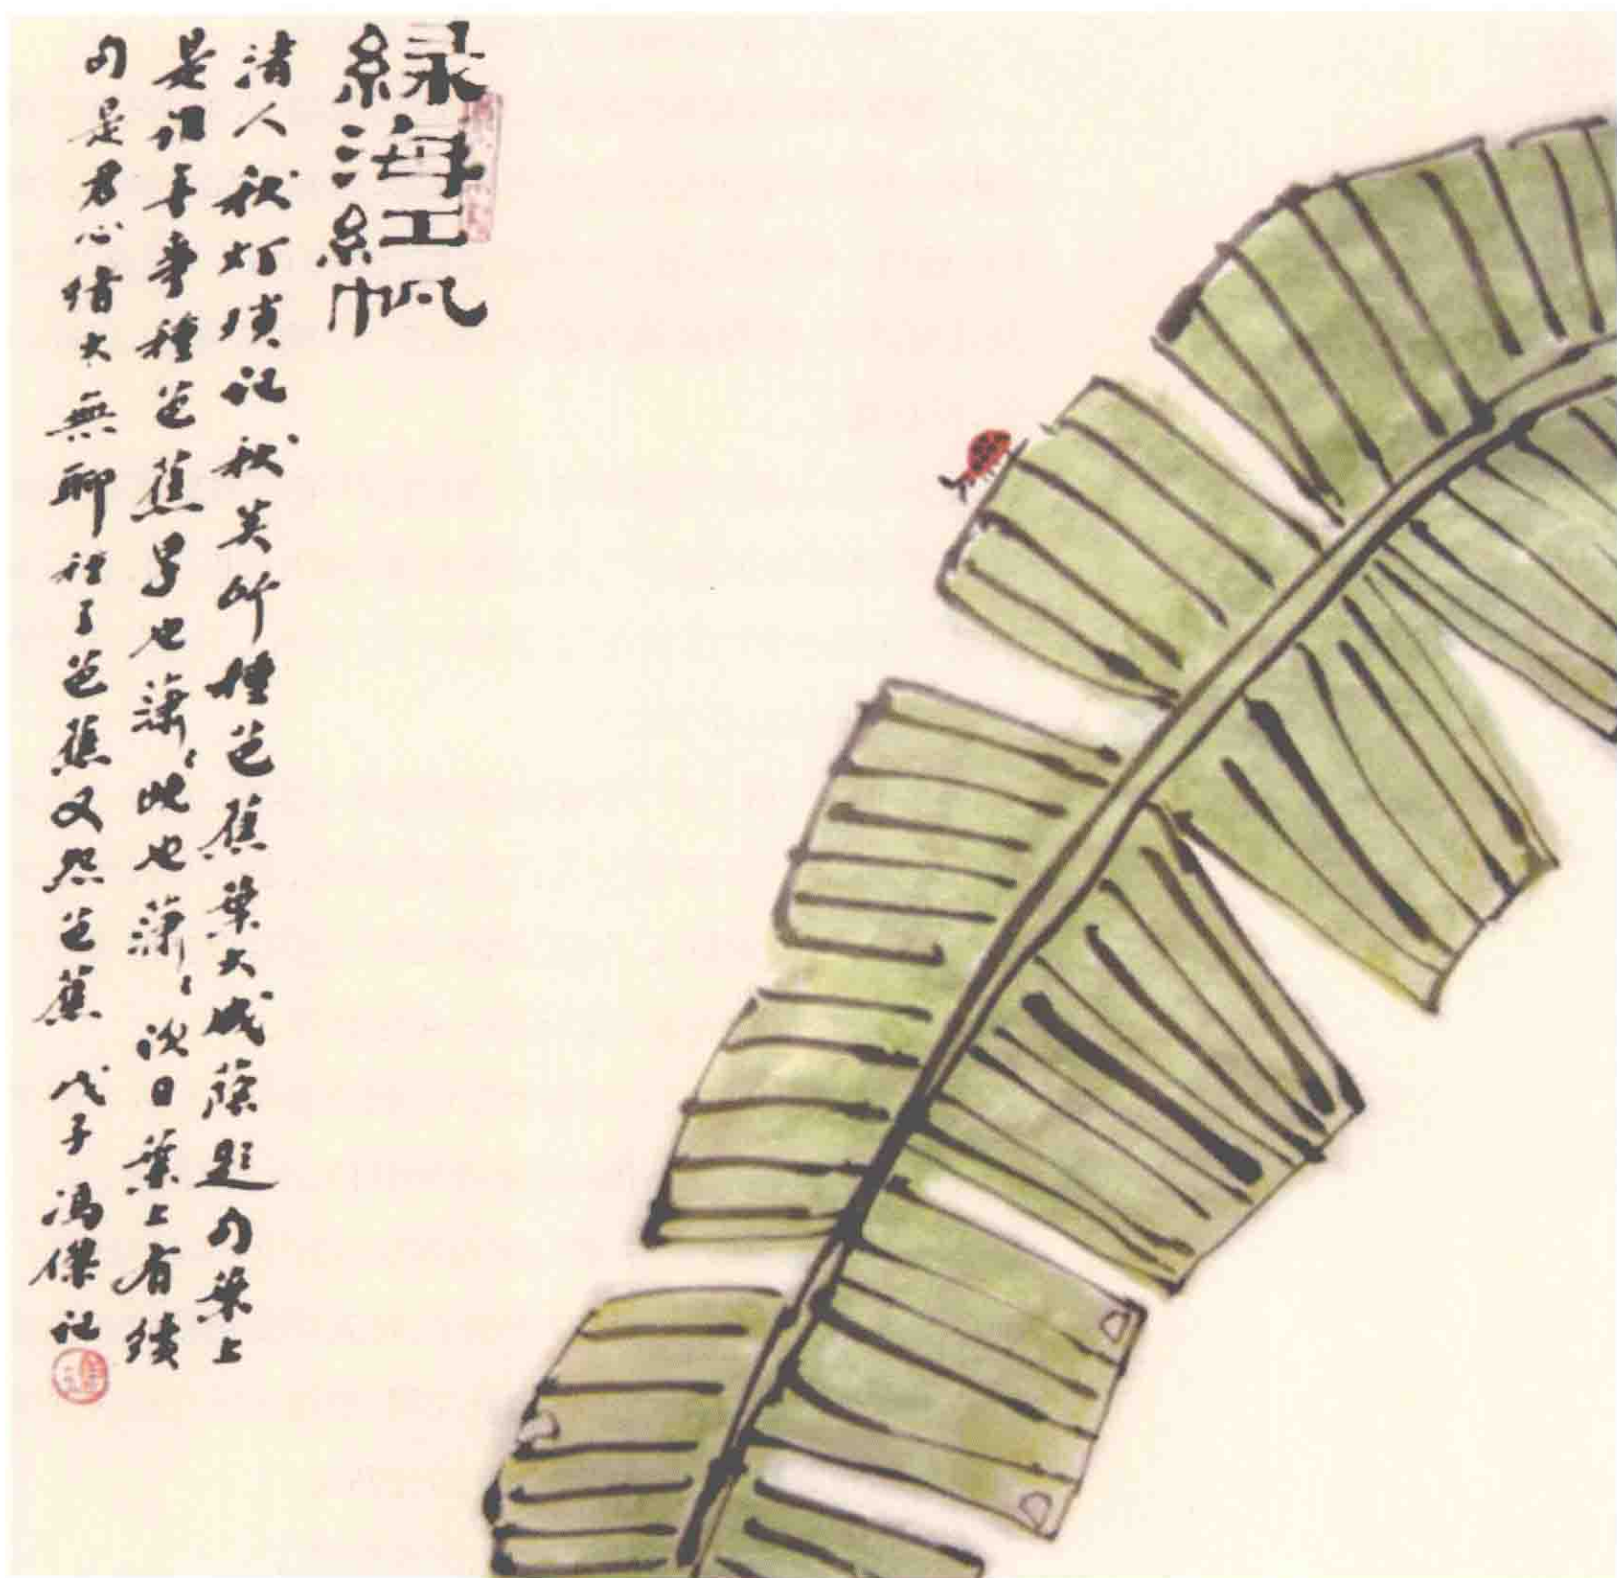 緑海紅帆
清人秋灯瑣記秋芙所種芭蕉葉大成蔭題句葉上
是誰多事種芭蕉早也蕭〻晚也蕭〻次日葉上有續
句是君心緒太無聊種了芭蕉又怨芭蕉 戊子馮傑記